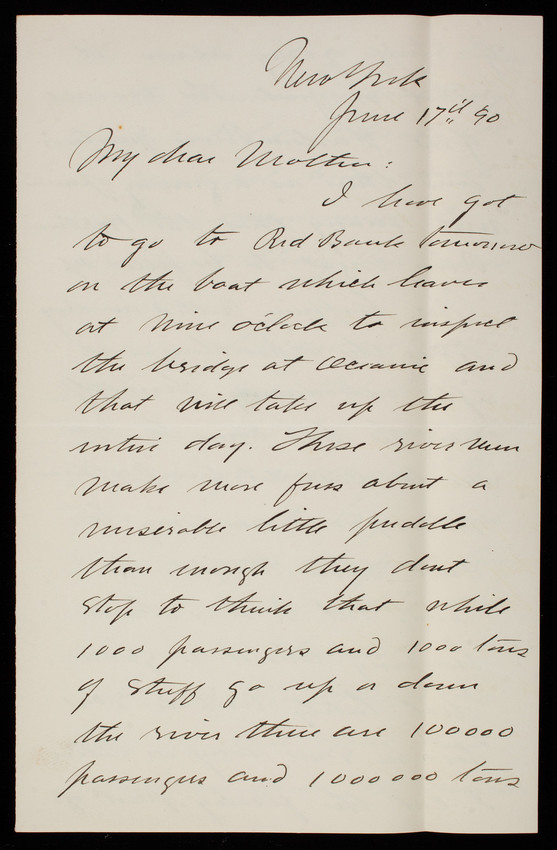 New York
June 17th 90
My dear Mother:
I have got
to go to Red Bank tomorrow
on the boat which leaves
at nine o'clock to inspect
the bridge at Oceanic and
that will take up the
entire day. These river men
make more fuss about a
miserable little puddle
than enough they dont
stop to think that while
1000 passengers and 1000 tons
of stuff go up or down
the river there are 100000
passengers and 1000000 tons